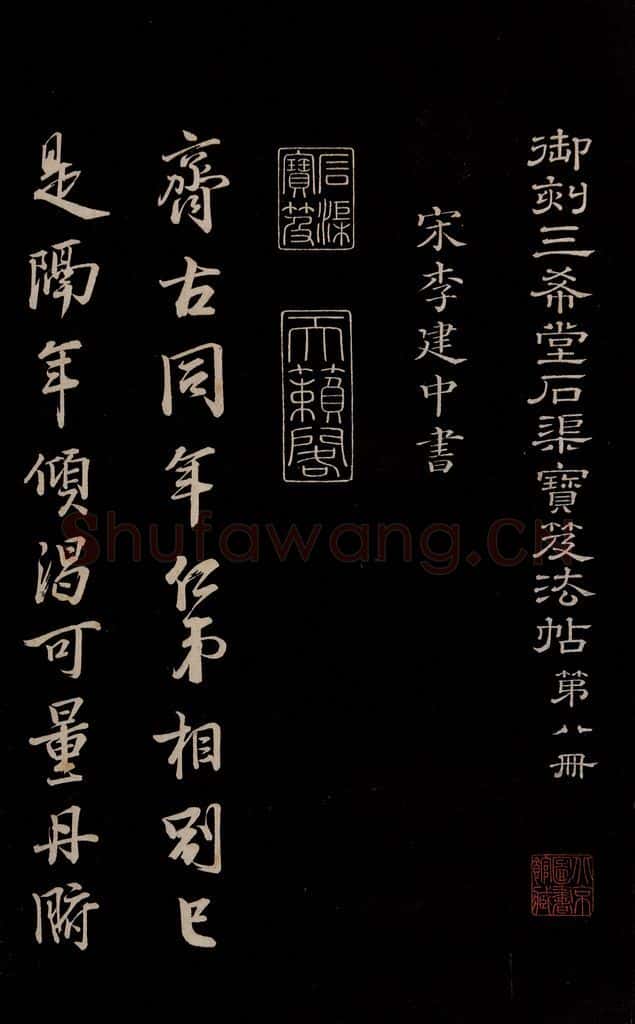 御刻三希堂石渠寶笈法帖第八冊
北京圖書館藏
宋李建中書
石渠寶笈
天籟閣
齊古同年仁弟相別已
是隔年傾渴可量丹腑
Shufawang.cn